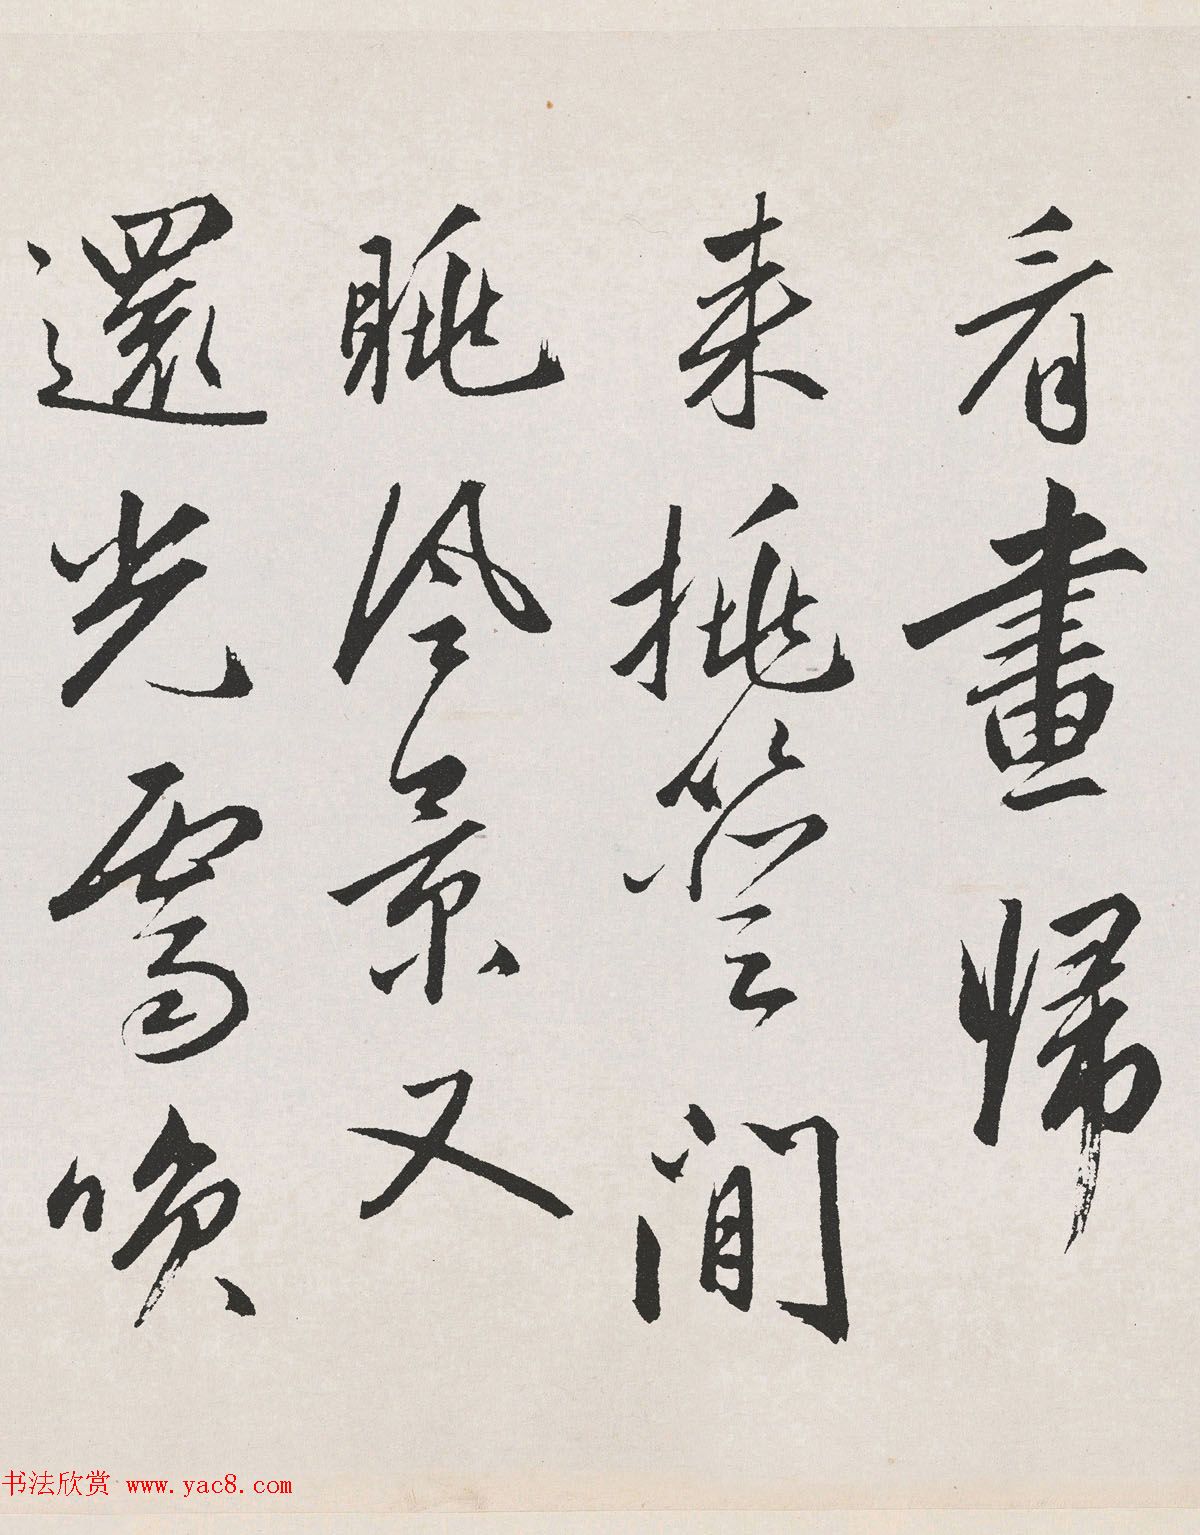 看畫歸
来挑簦閒
眺風景又
還光霽喚
书法欣赏 www.yac8.com